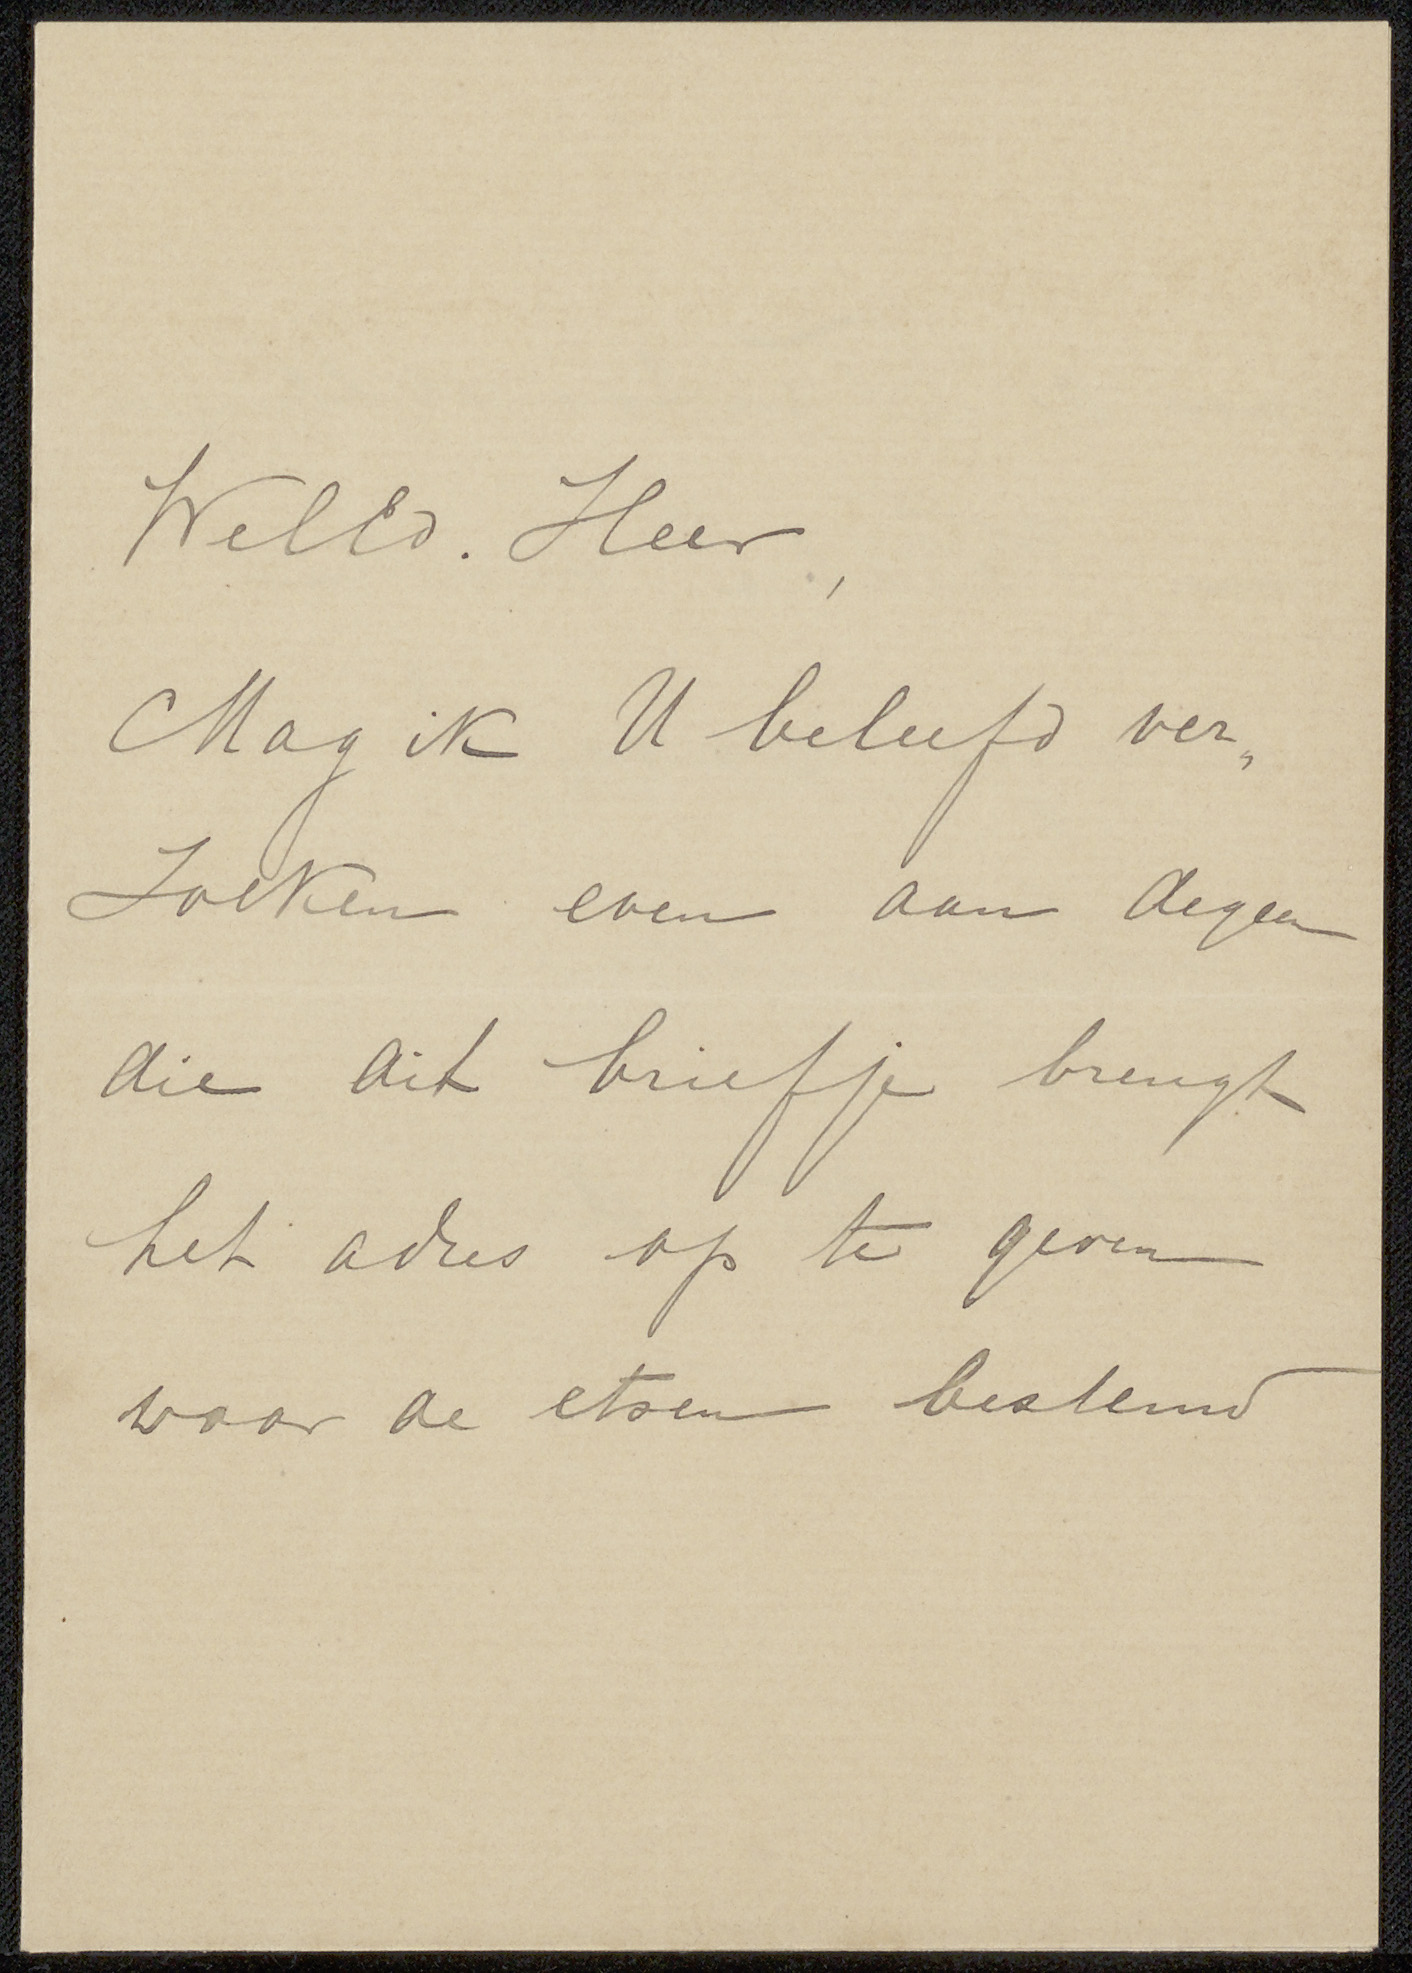 WelEd. Heer,
Mag ik U beleefd ver„
zoeken even aan degeen
die dit briefje brengt
het adres op te geven
waar de etsen bestemd